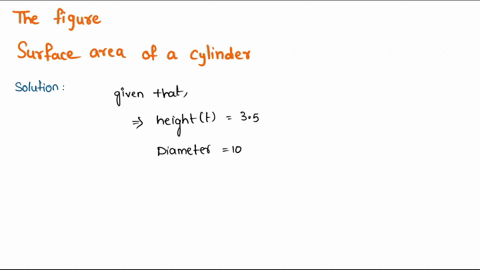 The figure
Surface area of a cylinder
Solution:
given that,
⇒ height(t) = 3.5
Diameter = 10